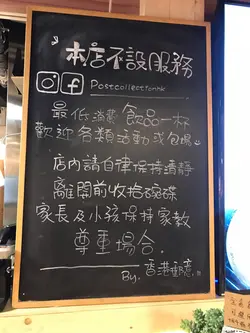 本店不設服務
Postcollectionhk
最低消費 飲品一杯
歡迎各類活動或包場
店內請自律保持清靜
離開前收拾碗碟
家長及小孩保持家教
尊重場合
By. 香港郵意